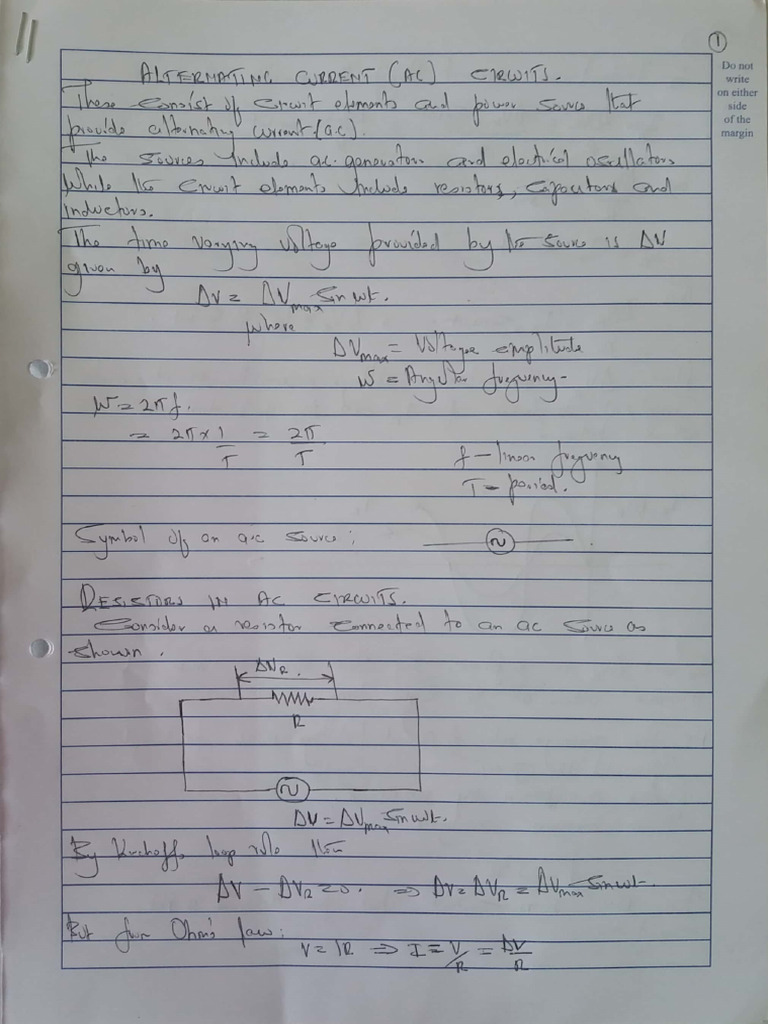 1
Do not
write
on either
side
of the
margin
ALTERNATING CURRENT (AC) CIRCUITS.
These consist of circuit elements and power source that
provide alternating current (a.c).
The sources include a.c. generators and electrical oscillators
while the circuit elements include resistors, capacitors and
inductors.
The time varying voltage provided by the source is ΔV
given by
ΔV = ΔVmax Sin wt.
where
ΔVmax = Voltage amplitude
W = Angular frequency-
W = 2πf.
= 2π × 1/T = 2π/T
f - linear frequency
T = period.
Symbol of an a.c source; ~
RESISTORS IN AC CIRCUITS.
Consider a resistor connected to an ac source as
shown.
ΔVR.
R
~
ΔV = ΔVmax Sin wt.
By Kirchoffs loop rule then
ΔV - ΔVR = 0. ⇒ ΔV = ΔVR = ΔVmax Sin wt.
But from Ohm's law:
V = IR ⇒ I = V/R = ΔV/R